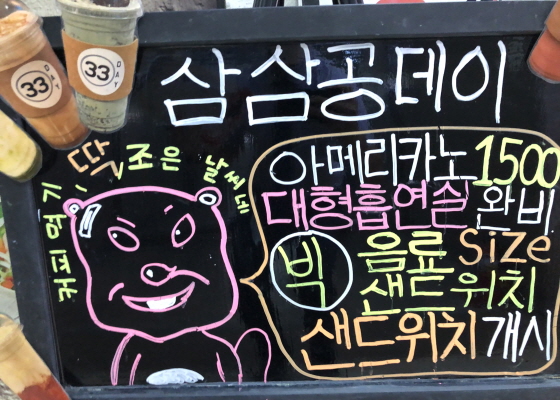 33
DAY
33
DAY
삼삼공데이
딱 조은 날씨네
커피먹기
아메리카노 1500
대형흡연실 완비
빅 음료 size
샌드위치
샌드위치 개시